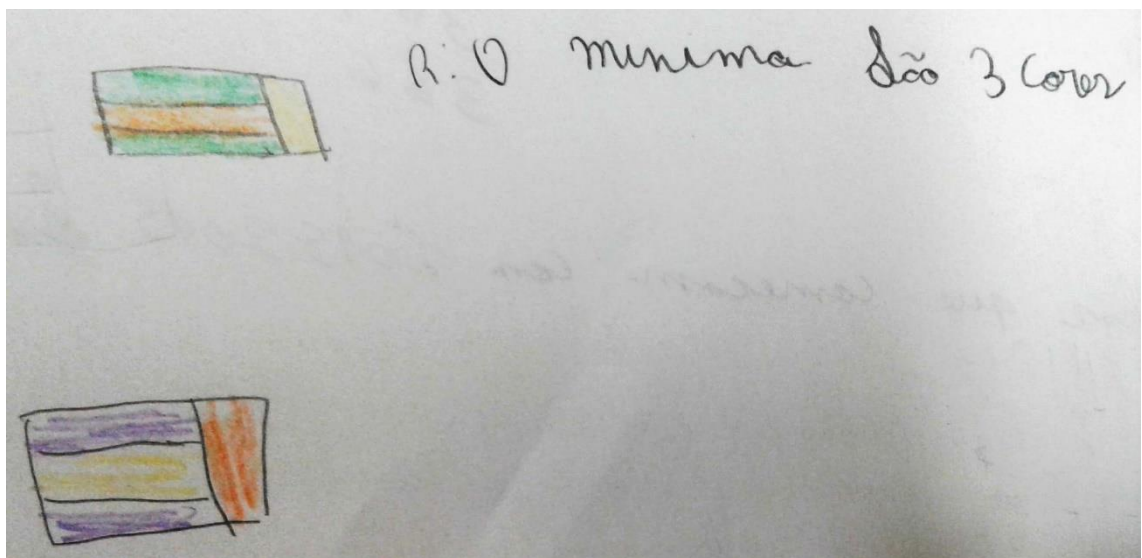 R: O minima são 3 cores